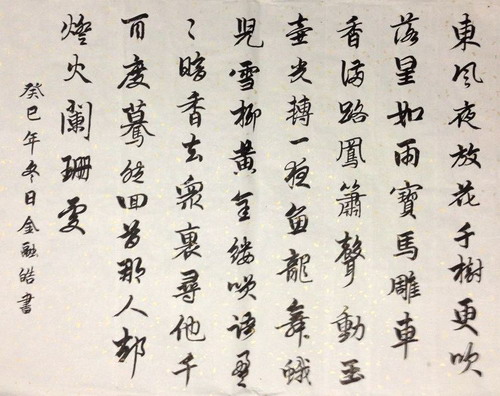 東風夜放花千樹更吹
落星如雨寶馬雕車
香滿路鳳簫聲動玉
壺光轉一夜魚龍舞蛾
兒雪柳黃金縷笑語盈
々暗香去衆裏尋他千
百度驀然回首那人却
燈火闌珊處
癸巳年冬日金融皓書